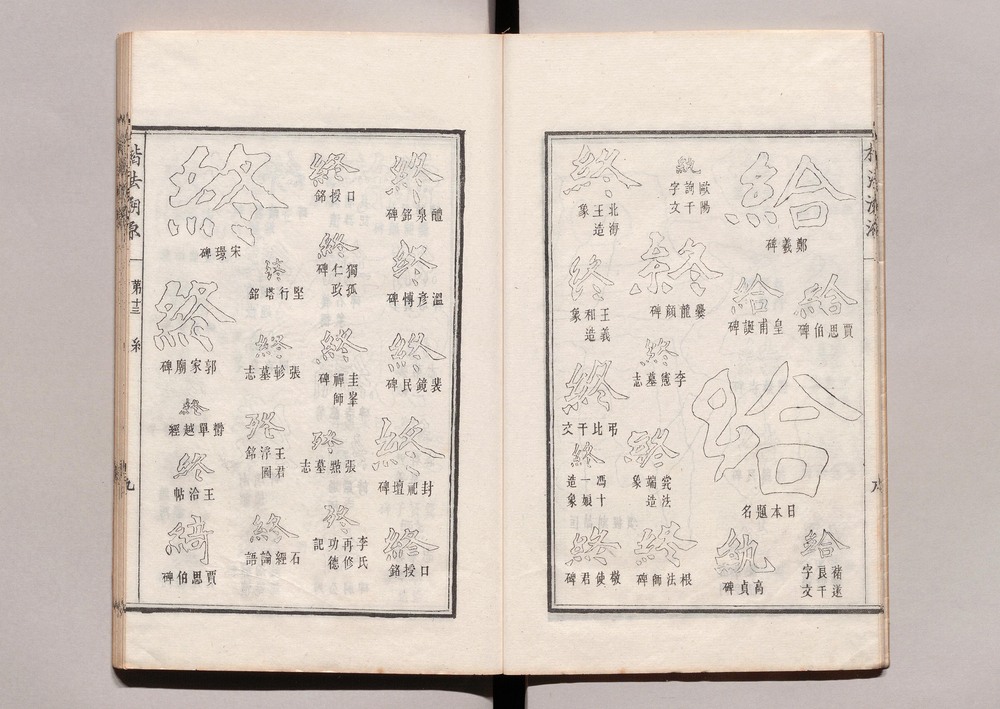 給
鄭羲碑
給
賈思伯碑
給
皇甫誕碑
給
日本題名
給
褚遂良千字文
紈
高貞碑
紈
歐陽詢千字文
終
爨龍顏碑
終
墓志
終
法端造象
終
根法師碑
終
北海王造象
終
王羲和造象
終
弔比干文
終
馮十一娘造象
終
敬使君碑
終
醴泉銘碑
終
溫彥博碑
終
裴鏡民碑
終
封祀壇碑
終
口授銘
終
口授銘
終
獨孤仁政碑
終
圭峯禪師碑
終
墓志
終
李氏再修功德記
終
堅行塔銘
終
張軫墓志
終
王君浮圖銘
終
石經論語
終
宋璟碑
終
郭家廟碑
終
鬱單越經
終
王洽帖
綺
賈思伯碑
楷法溯源
第十三
糸
九